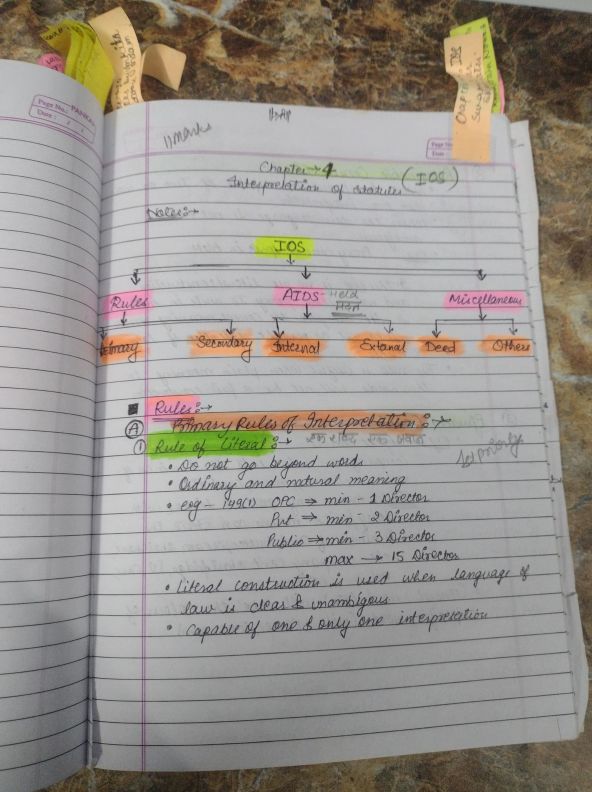 Page No.:
Date:
11 marks
Page No.
Date
Chapter → 4
Interpretation of statutes (IOS)
Notes:→
IOS
Rules AIDS Held मदद Miscellaneous
Primary Secondary Internal External Deed Others
Rules:→
Ⓐ Primary Rules of Interpretation:→
① Rule of Literal:→ एक शब्द एक जवाब
1st priority
• Do not go beyond words
• Ordinary and natural meaning
• eog - 149(1) OPC ⇒ min - 1 Director
Pvt ⇒ min - 2 Director
Public ⇒ min - 3 Director
max → 15 Director
• Literal construction is used when language of
law is clear & unambigous
• Capable of one & only one interpretation